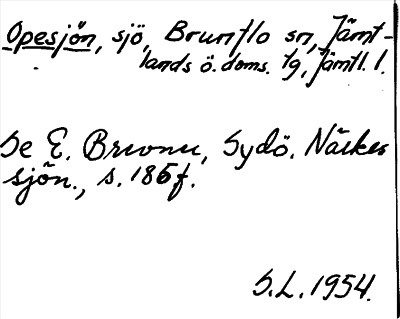 Opesjön, sjö, Brunflo sn, Jämt-
lands ö. doms. tg, Jämtl. l.
Se E. Brevner, Sydö. Närkes
sjön., s. 186f.
S.L. 1954.